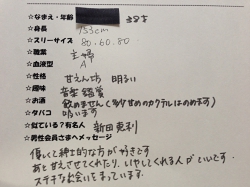 ☆なまえ・年齢 38才
☆身長 153cm
☆スリーサイズ 80.60.80
☆職業 主婦
☆血液型 A
☆性格 甘えん坊 明るい
☆趣味 音楽鑑賞
☆お酒 飲めません(多少甘めのカクテルはのめます)
☆タバコ 吸います
☆似ている?有名人 新田恵利
☆男性会員さまへメッセージ
優しくて紳士的な方が好きです
あと甘えさせてくれたり、いやしてくれる人がいいです。
ステキなお会いをまっています。